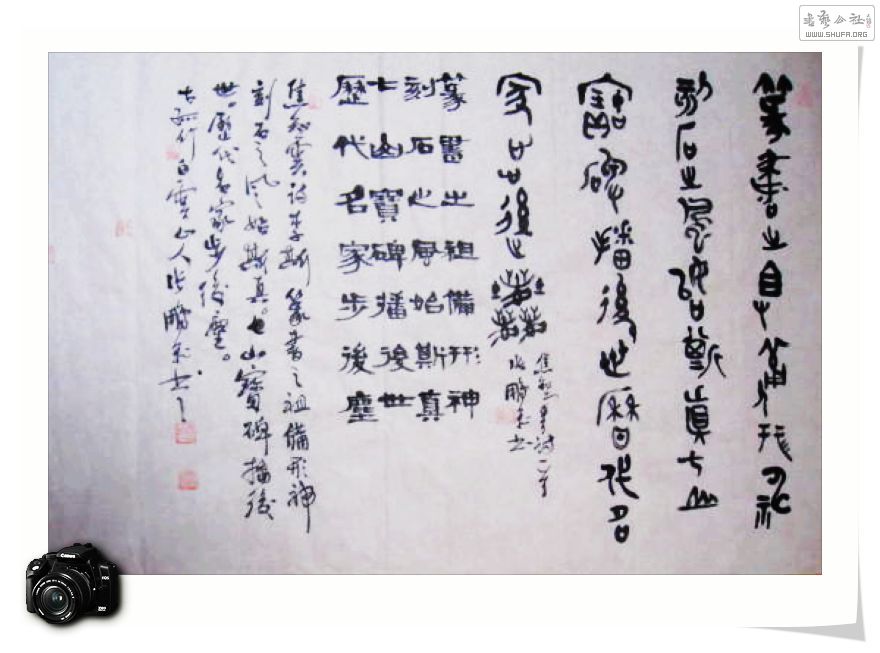 篆書之祖備形神
刻石之風始斯真七山
寶碑播後世歷代名
家步後塵
篆書之祖備形神
刻石之風始斯真
七山寶碑播後世
歷代名家步後塵
焦知雲詩李斯篆書之祖備形神
刻石之風始斯真。七山寶碑播後
世。歷代名家步後塵。
白雲山人張鵬
書藝公社
WWW.SHUFA.ORG
Canon
EOS